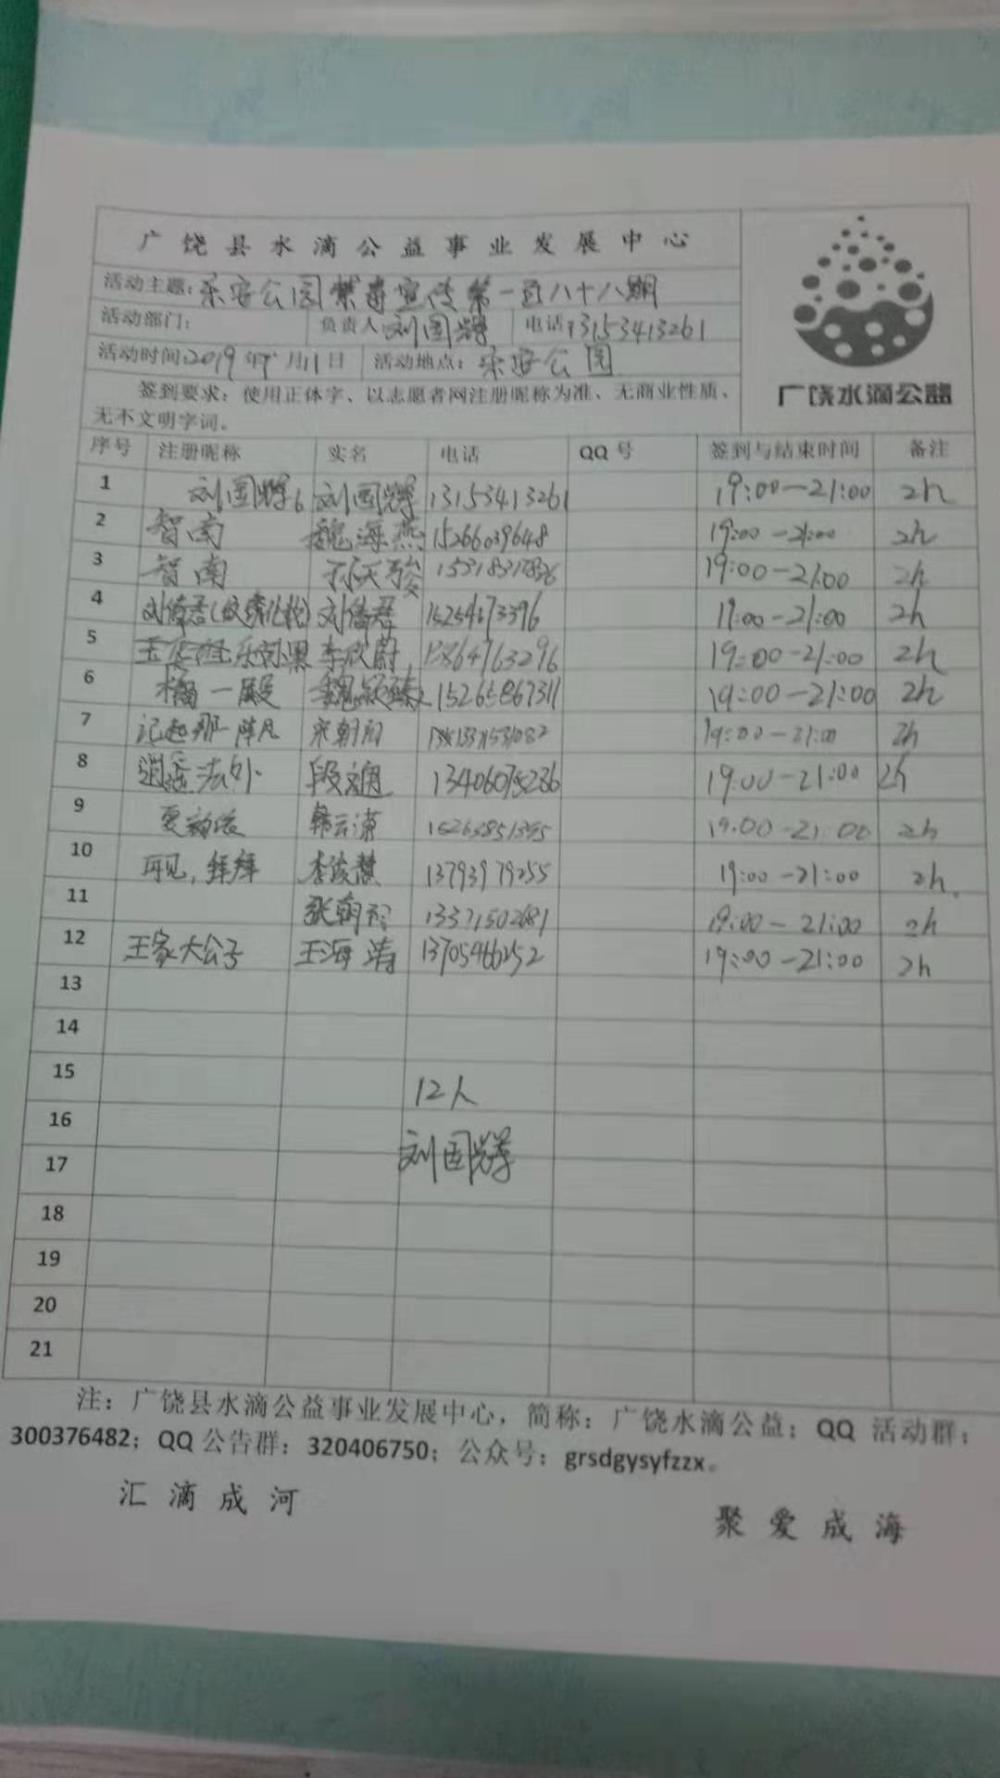 广饶县水滴公益事业发展中心
活动主题：乐安公园禁毒宣传第一百八十八期
活动部门： 负责人 刘国辉 电话 13153413261
活动时间：2019年 月11日 活动地点：乐安公园
签到要求：使用正体字、以志愿者网注册昵称为准、无商业性质、
无不文明字词。
广饶水滴公益
序号 注册昵称 实名 电话 QQ号 签到与结束时间 备注
1 刘国辉6 刘国辉 13153413261 19:00-21:00 2h
2 智南 魏海燕 15266039648 19:00-21:00 2h
3 智南 19:00-21:00 2h
4 刘倩君 19:00-21:00 2h
5 李欣蔚 19:00-21:00 2h
6 一殿 15265867311 19:00-21:00 2h
7 记起那一阵风 19:00-21:00 2h
8 逍遥法外 13406075236 19:00-21:00 2h
9 韩云潇 19:00-21:00 2h
10 再见，拜拜 李俊慧 13793979255 19:00-21:00 2h.
11 13371502681 19:00-21:00 2h
12 王家大公子 王海涛 13705466252 19:00-21:00 2h
13
14
15
12人
16
刘国辉
17
18
19
20
21
注：广饶县水滴公益事业发展中心，简称：广饶水滴公益；QQ 活动群：
300376482；QQ公告群：320406750；公众号：grsdgysyfzzx。
汇滴成河
聚爱成海